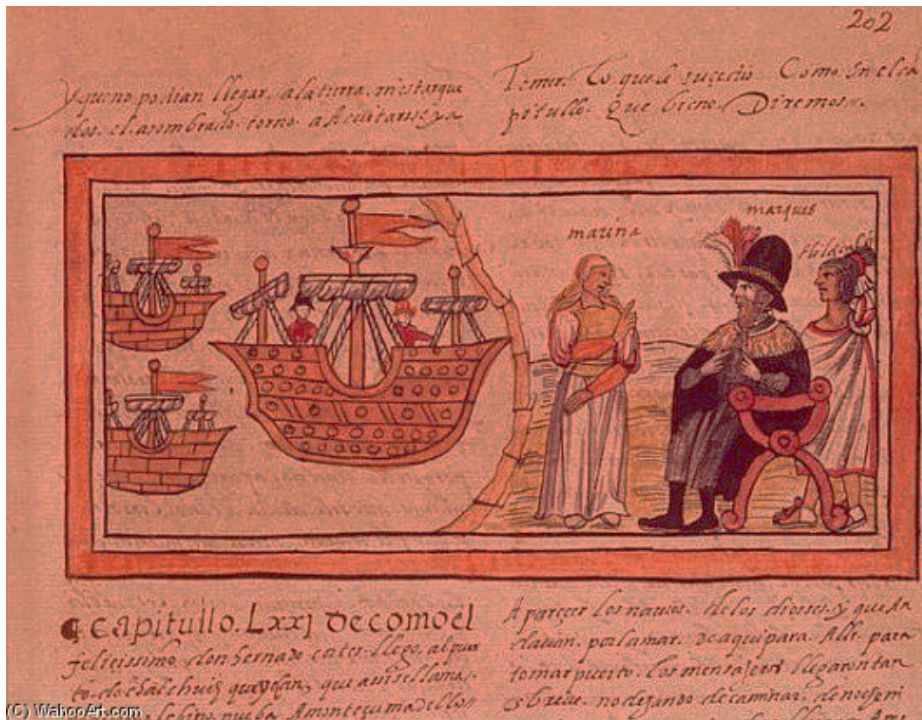 202
y que no podian llegar. a la tierra. ni estar que
dos. el asombrado. torno a
Temer. Lo que le suçedio. Como. En el ca
pitullo. Que biene. Diremos.
marina
marques
Capitullo. Lxxj De como el
feliçissimo. don hernãdo cortes. llego. al puer
to. de chalchiuh que aussi llama.
Apareçer los nauios. de los diosses. y que An
dauan. por la mar. De aqui para. Alli. para
tomar puerto. los mensajeros llegaron tan
breue. no dejando de caminar. de noche ni
(C) WahooArt.com